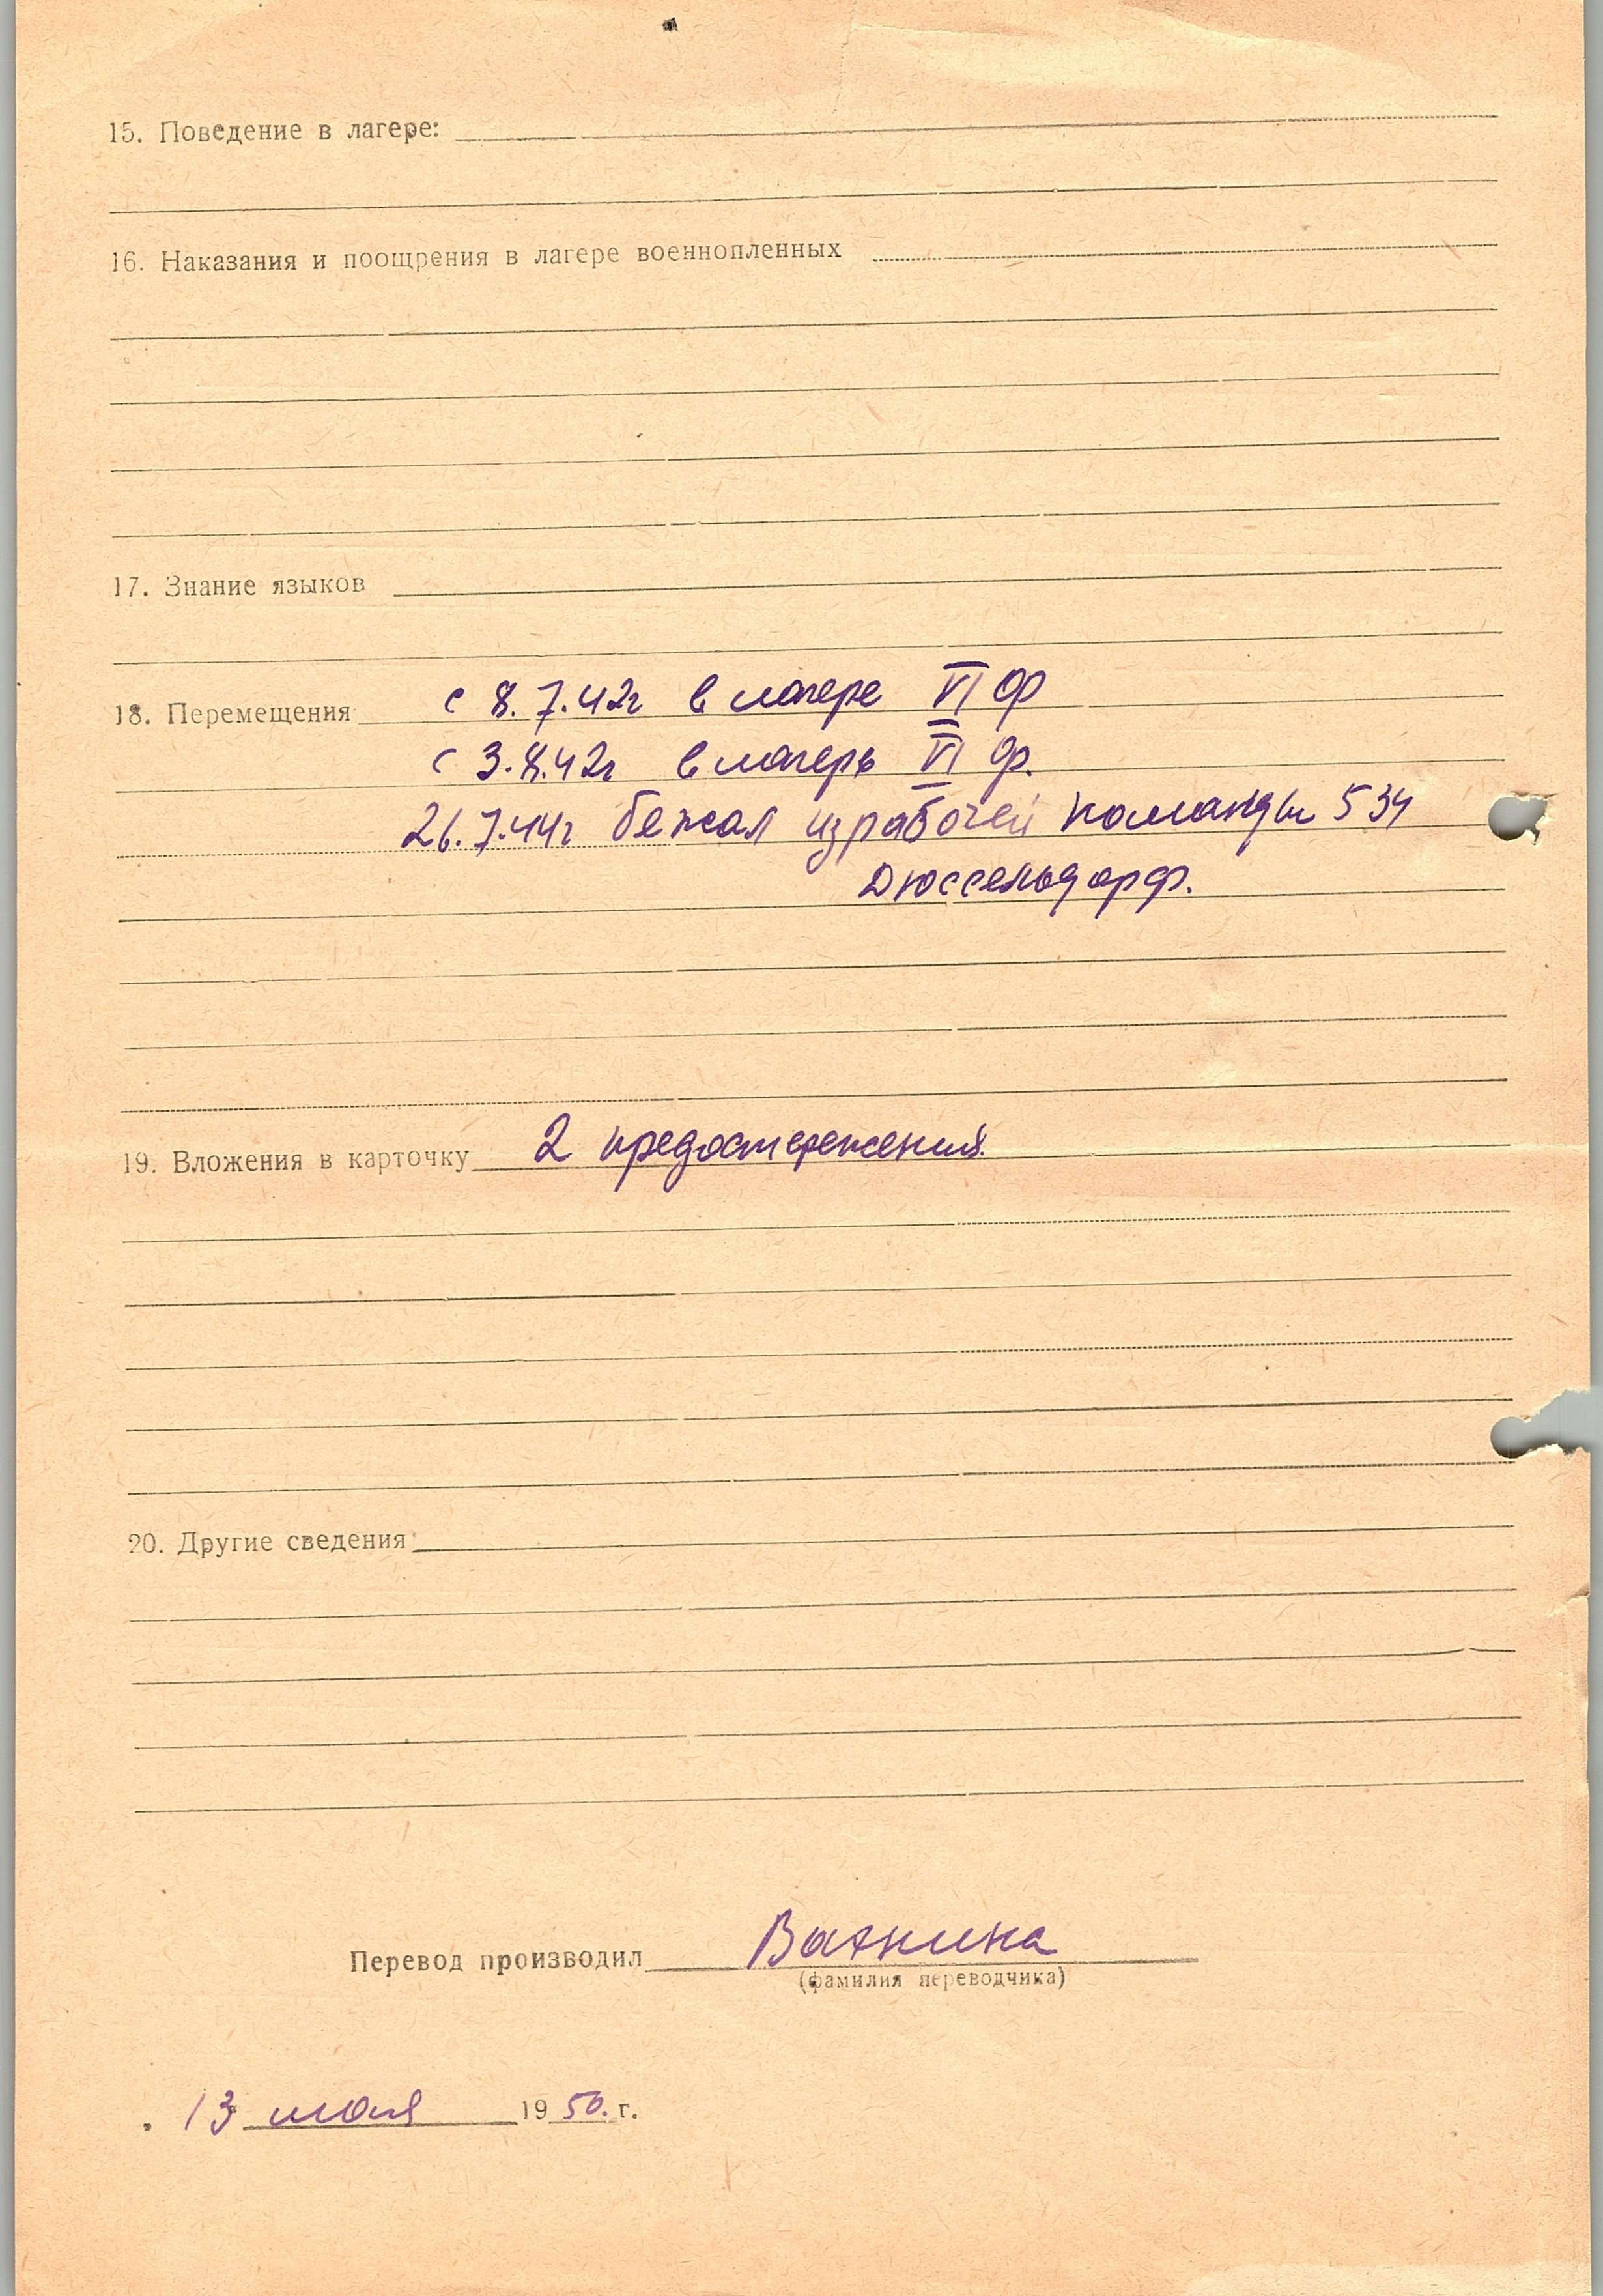 15. Поведение в лагере:
16. Наказания и поощрения в лагере военнопленных
17. Знание языков
18. Перемещения с 8.7.42г в лагере VI ф
с 3.8.42г в лагерь VI ф.
26.7.44г бежал из рабочей команды 534
Дюссельдорф.
19. Вложения в карточку 2 предостережения.
20. Другие сведения
Перевод производил
(фамилия переводчика)
13 мая 1950. г.